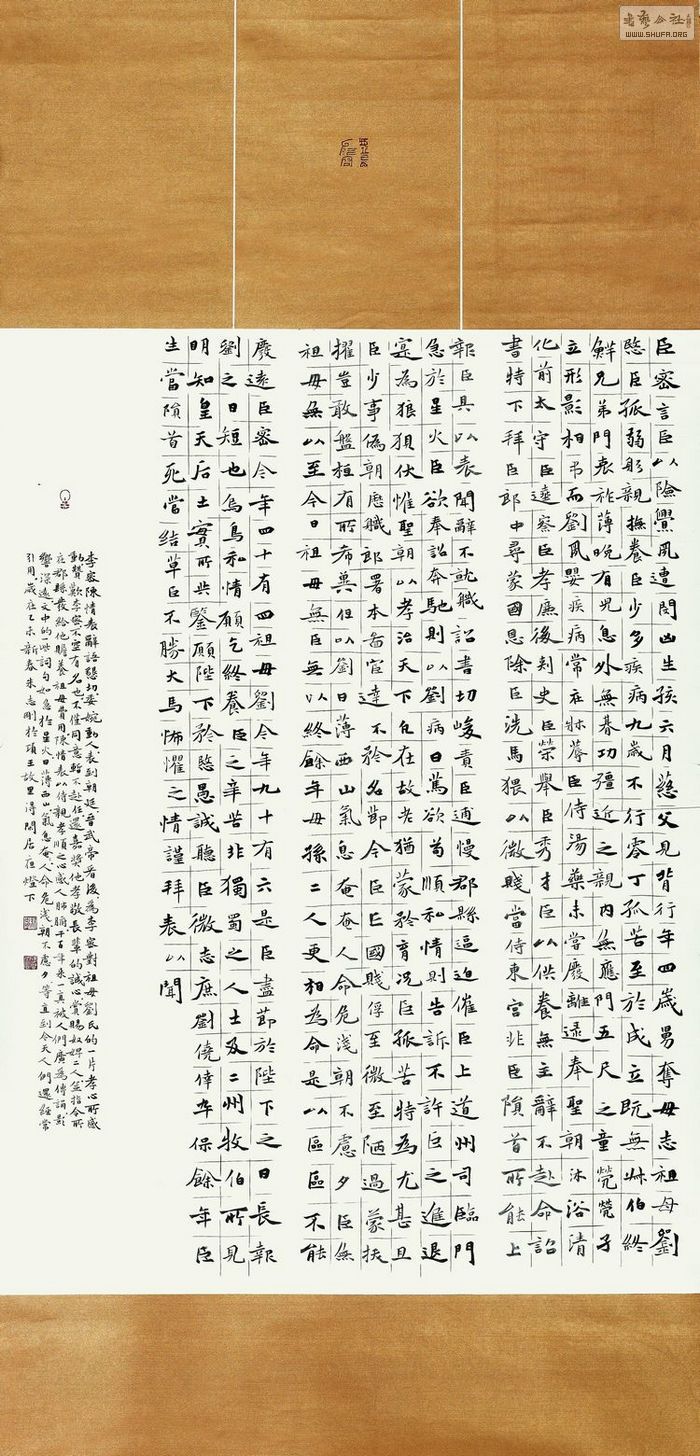 臣密言臣以險釁夙遭閔凶生孩六月慈父見背行年四歲舅奪母志祖母劉
愍臣孤弱躬親撫養臣少多疾病九歲不行零丁孤苦至於成立既無叔伯終
鮮兄弟門衰祚薄晚有兒息外無朞功彊近之親內無應門五尺之童煢煢孑
立形影相弔而劉夙嬰疾病常在牀蓐臣侍湯藥未嘗廢離逮奉聖朝沐浴清
化前太守臣逵察臣孝廉後刺史臣榮舉臣秀才臣以供養無主辭不赴命詔
書特下拜臣郎中尋蒙國恩除臣洗馬猥以微賤當侍東宮非臣隕首所能上
報臣具以表聞辭不就職詔書切峻責臣逋慢郡縣逼迫催臣上道州司臨門
急於星火臣欲奉詔奔馳則以劉病日篤欲苟順私情則告訴不許臣之進退
寔為狼狽伏惟聖朝以孝治天下凡在故老猶蒙矜育況臣孤苦特為尤甚且
臣少事偽朝歷職郎署本啚宦達不矜名節今臣亡國賤俘至微至陋過蒙拔
擢豈敢盤桓有所希冀但以劉日薄西山氣息奄奄人命危淺朝不慮夕臣無
祖母無以至今日祖母無臣無以終餘年母孫二人更相為命是以區區不能
廢遠臣密今年四十有四祖母劉今年九十有六是臣盡節於陛下之日長報
劉之日短也烏鳥私情願乞終養臣之辛苦非獨蜀之人士及二州牧伯所見
明知皇天后土實所共鑒願陛下矜愍愚誠聽臣微志庶劉僥倖卒保餘年臣
生當隕首死當結草臣不勝犬馬怖懼之情謹拜表以聞
李密陳情表辭語懇切委婉動人表到朝廷晉武帝看後為李密對祖母劉氏的一片孝心所感
動贊歎李密不空有名也不僅同意暫不赴任還嘉獎他孝敬長輩的誠心賞賜奴婢二人並指令所
在郡縣發給他贍養祖母費用陳情表以侍親孝順之心感人肺腑千百年來一真被人們廣為傳誦影
響深遠文中的一些詞句如急於星火日薄西山氣息奄奄人命危淺朝不慮夕等直到今天人們還經常
引用歲在乙未新春朱志剛於項王故里得閒居夜燈下
書藝公社
WWW.SHUFA.ORG